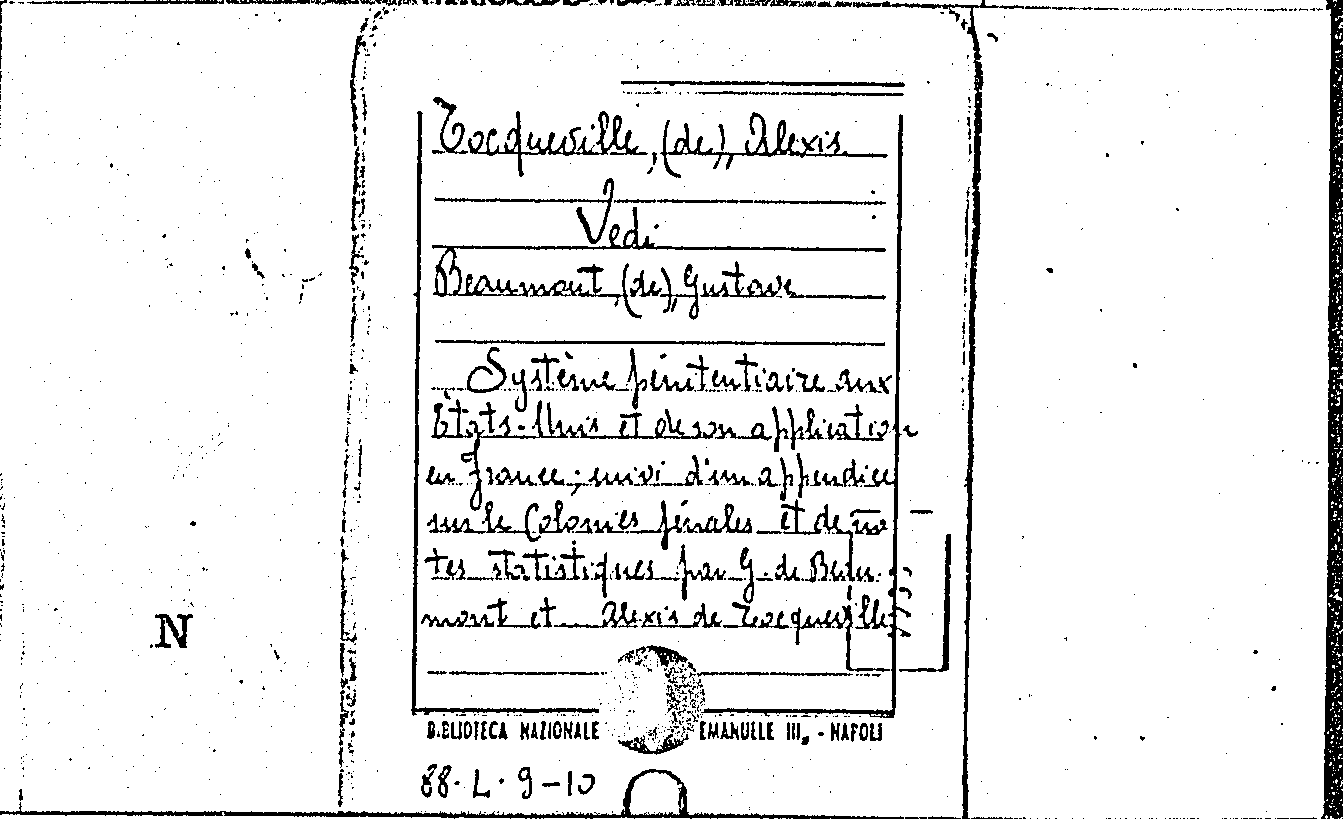 Tocqueville, (de), Alexis
Vedi
Beaumont, (de), Gustave
Système pénitentiaire aux
États-Unis et de son application
en France; suivi d'un appendice
sur le Colonies pénales et de no
tes statistiques par G. de Beau-
mont et Alexis de Tocqueville
N
BIBLIOTECA NAZIONALE EMANUELLE III, - NAPOLI
88. L. 9-10